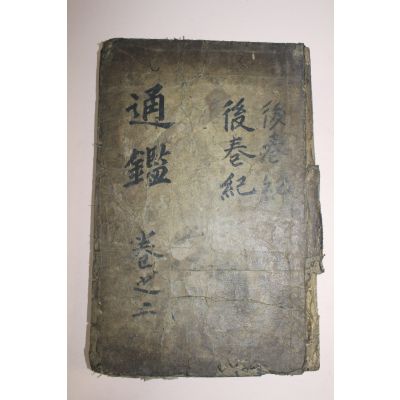 後秦紀
後秦紀
通鑑 卷之二